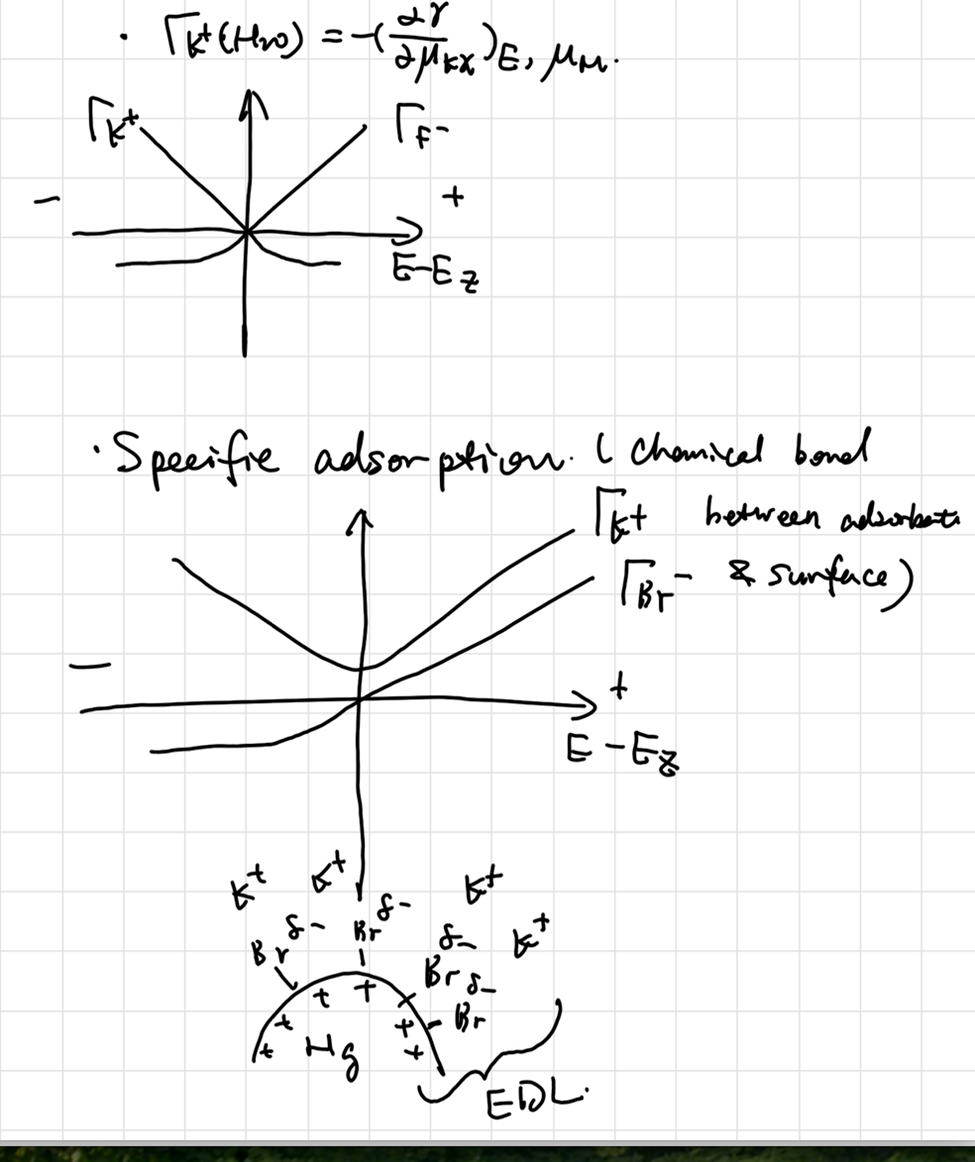 · ΓK⁺(H₂O) = -(∂γ/∂μKX)E, μM.
ΓK⁺ ΓF⁻
− +
E-Ez
· Specific adsorption. ( Chemical bond
ΓK⁺ between adsorbate
ΓBr⁻ & surface)
− +
E - Ez
K⁺ K⁺ K⁺
δ- δ-
Br Br δ- K⁺
Br δ-
+ + Br
+ Hg + +
+
EDL.